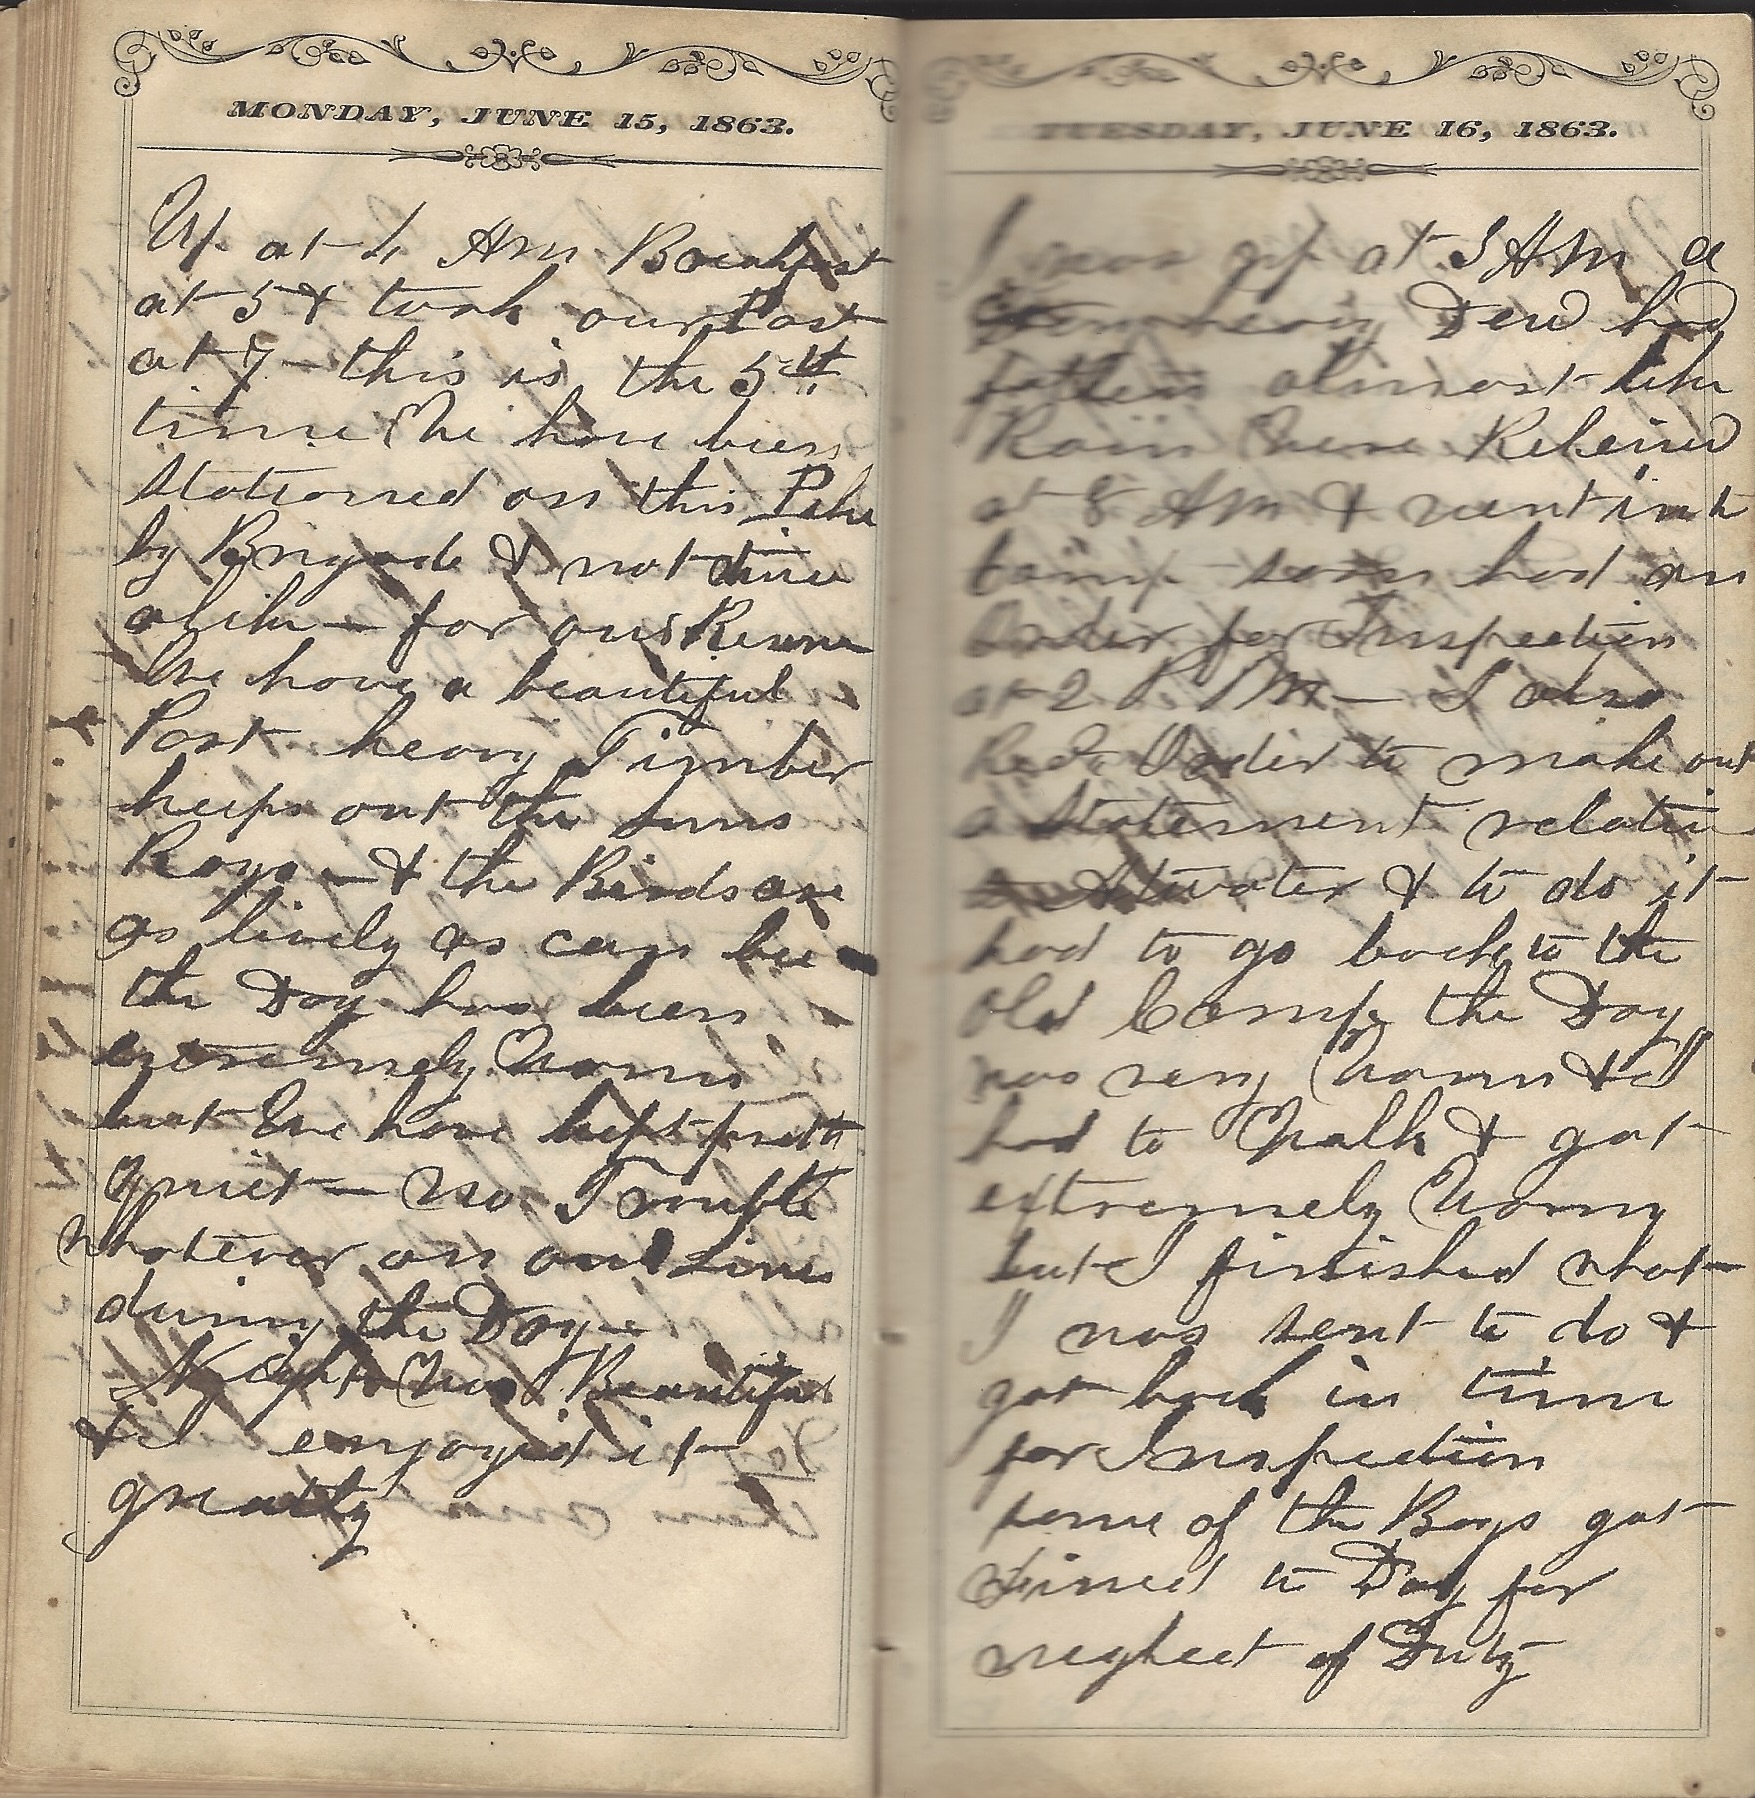 MONDAY, JUNE 15, 1863.
Up at 4 Am Breakfast
at 5 & took our Post
at 7 – this is the 5th
time We have been
stationed on this Pike
by Brigade & not twice
alike – for our Reserve
We have a beautiful
Post heavy Timber
keeps out the Suns
Rays – & the Birds are
as lively as can bee –
the Day has been
extremely Warm
but We have kept pretty
quiet – no Trouble
whatever on our Lines
during the Day –
Night was Beautiful
& I enjoyed it
greatly
TUESDAY, JUNE 16, 1863.
I was up at 3 AM a
heavy Dew had
fallen almost like
Rain Were Releived
at 8 AM & went in to
Camp soon had an
Order for Inspection
at 2 P M – I also
Recd Order to make out
a Statement relative
to Atwater & to do it
had to go back to the
old Camp the Day
was very Warm & I
had to Walk & got
extremely Warm
but I finished what
I was sent to do &
got back in time
for Inspection
some of the Boys got
to Day for
neglect of Duty